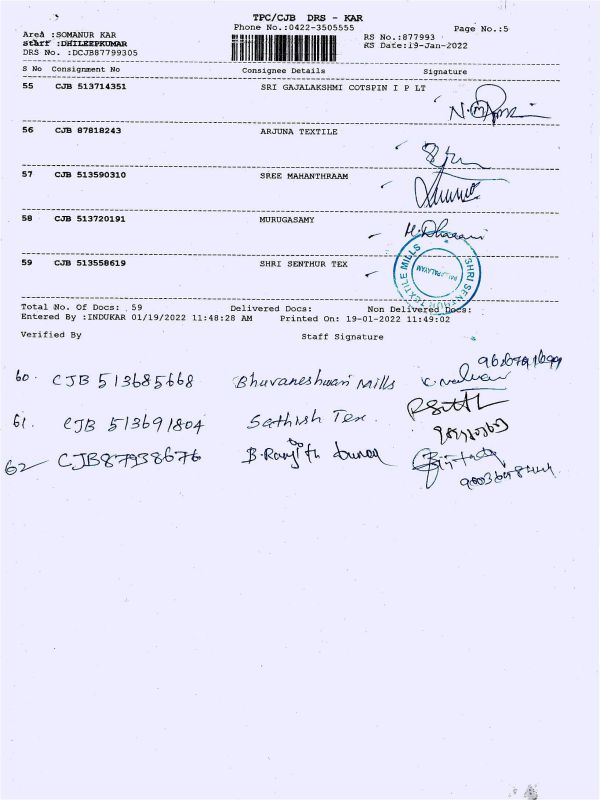 TPC/CJB DRS - KAR
Phone No.:0422-3505555 Page No.:5
Area :SOMANUR KAR RS No.:877993
Staff :DHILEEPKUMAR RS Date:19-Jan-2022
DRS No. :DCJB87799305
S No Consignment No Consignee Details Signature
55 CJB 513714351 SRI GAJALAKSHMI COTSPIN I P LT
56 CJB 87818243 ARJUNA TEXTILE
57 CJB 513590310 SREE MAHANTHRAAM
58 CJB 513720191 MURUGASAMY
M. Dharani
59 CJB 513558619 SHRI SENTHUR TEX
SHRI SENTHUR TEXTILE MILLS
Total No. Of Docs: 59 Delivered Docs: Non Delivered Docs:
Entered By :INDUKAR 01/19/2022 11:48:28 AM Printed On: 19-01-2022 11:49:02
Verified By Staff Signature
60. CJB 513685668 Bhuvaneshwari Mills
61. CJB 513691804 Sathish Tex.
62 CJB87938676 B. Ranjith